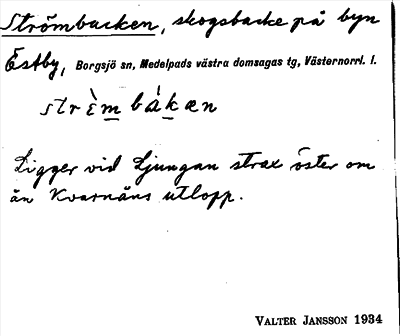 Strömbacken, skogsbacke på byn
Östby, Borgsjö sn, Medelpads västra domsagas tg, Västernorrl. l.
strèm bákæn
Ligger vid Ljungan strax öster om
ån Kvarnåns utlopp.
VALTER JANSSON 1934